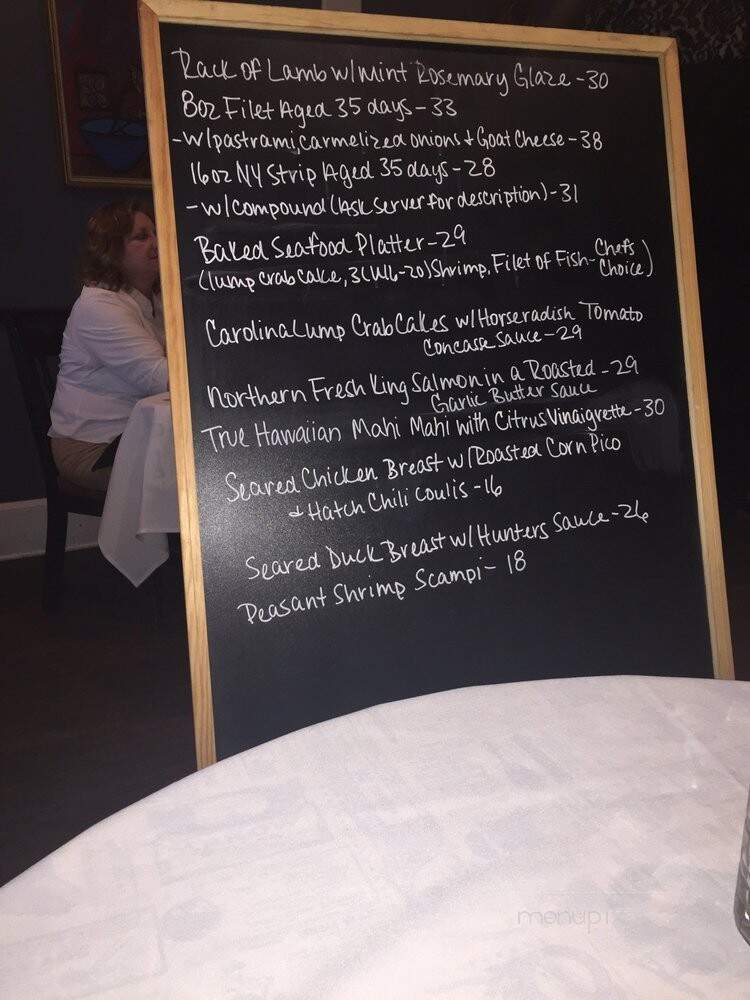 Rack of Lamb w/Mint Rosemary Glaze - 30
8oz Filet Aged 35 days - 33
- w/pastrami, carmelized onions + Goat Cheese - 38
16oz NY Strip Aged 35 days - 28
- w/compound (Ask server for description) - 31
Baked Seafood Platter - 29
(lump crab cake, 3 (U16-20) Shrimp, Filet of Fish - Chefs Choice)
Carolina Lump Crab Cakes w/Horseradish Tomato
Concasse Sauce - 29
Northern Fresh King Salmon in a Roasted - 29
Garlic Butter Sauce
True Hawaiian Mahi Mahi with Citrus Vinaigrette - 30
Seared Chicken Breast w/Roasted Corn Pico
+ Hatch Chili coulis - 16
Seared Duck Breast w/Hunters Sauce - 26
Peasant Shrimp Scampi - 18
menupix